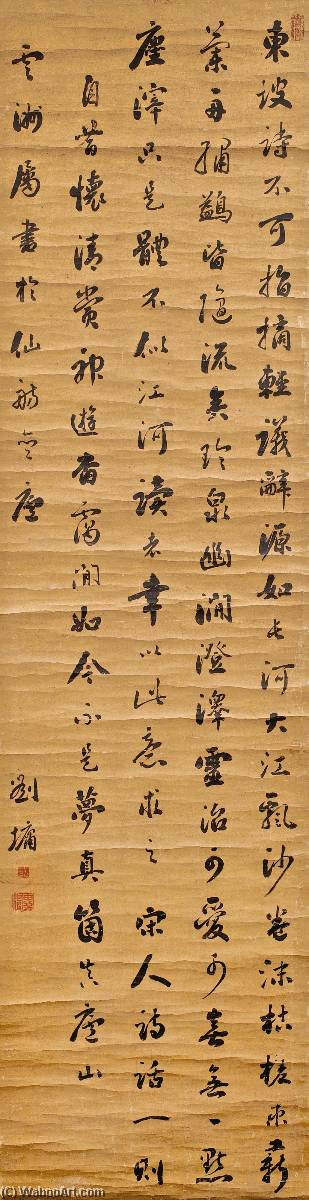 東坡詩不可指摘輕議辭源如長河大江飄沙卷沫枯槎束薪
蘭舟繡鷁皆隨流矣珍泉幽澗澄澤靈沼可愛可喜無一點
塵滓只是體不似江河讀者幸以此意求之 宋人詩話一則
自昔懷清賞神遊杳靄間如今不是夢真箇在廬山
雲洲屬書於仙舫 劉墉
(C) WahooArt.com